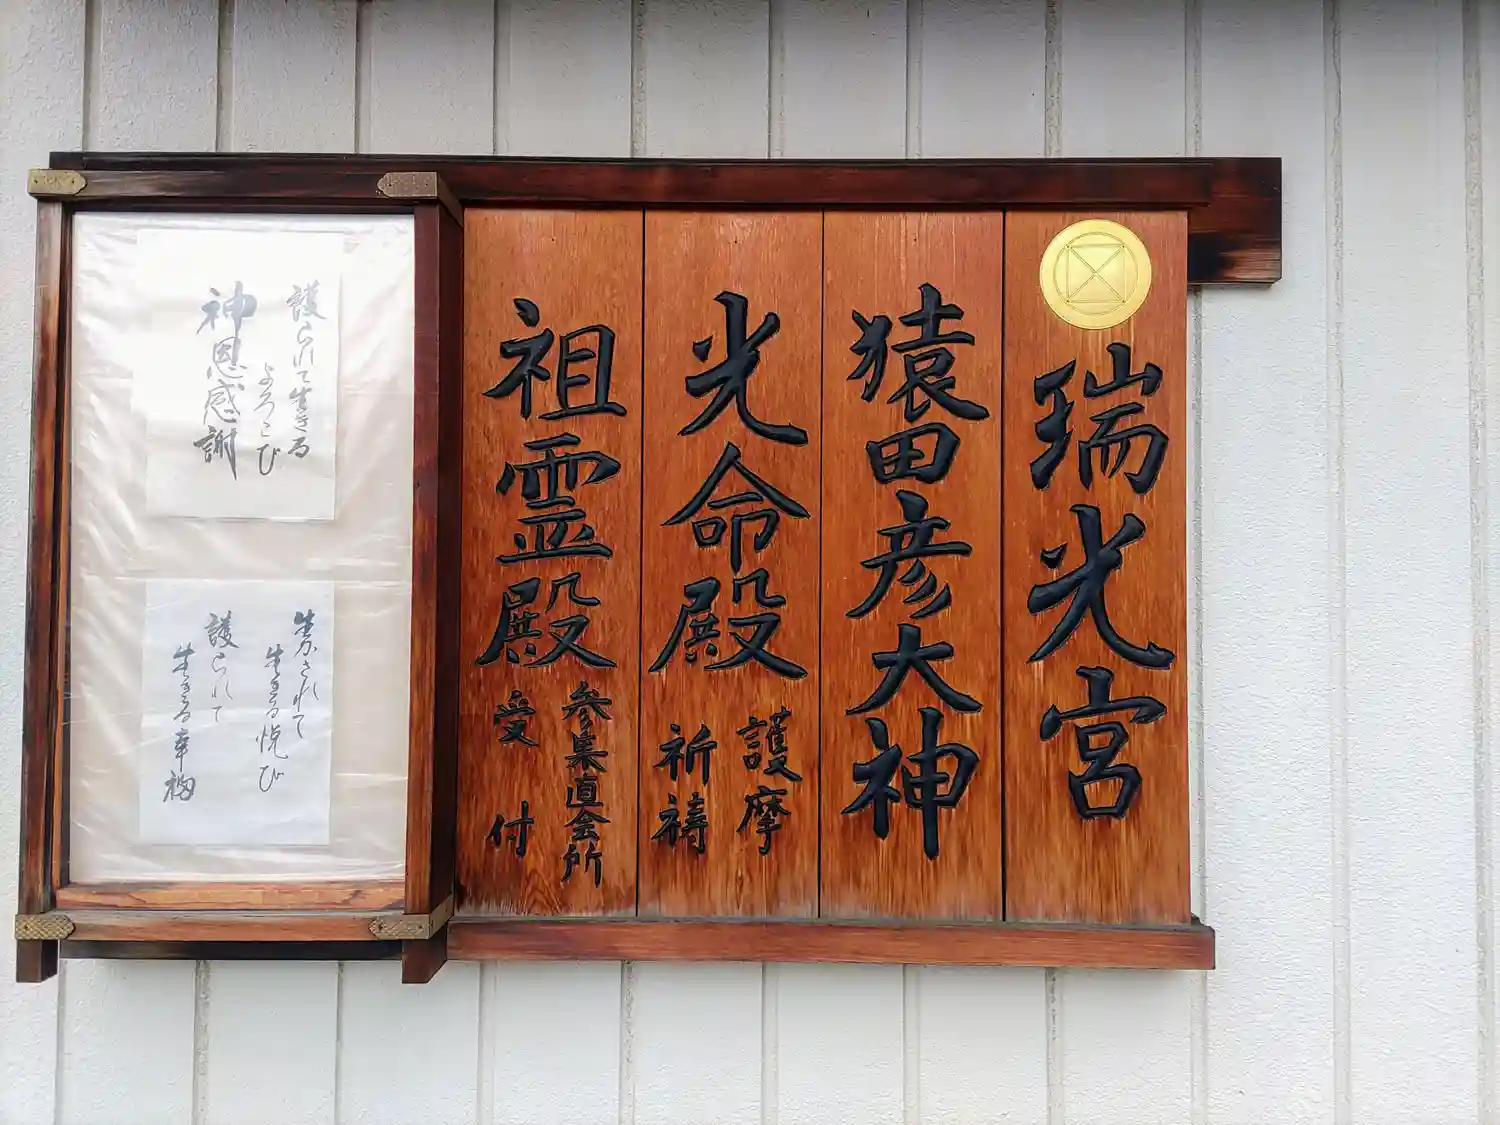 瑞光宮
猿田彦大神
光命殿
護摩
祈祷
祖霊殿
参集直会所
受付
護られて生きる
よろこび
神恩感謝
生かされて
生きる悦び
護られて
生きる幸福